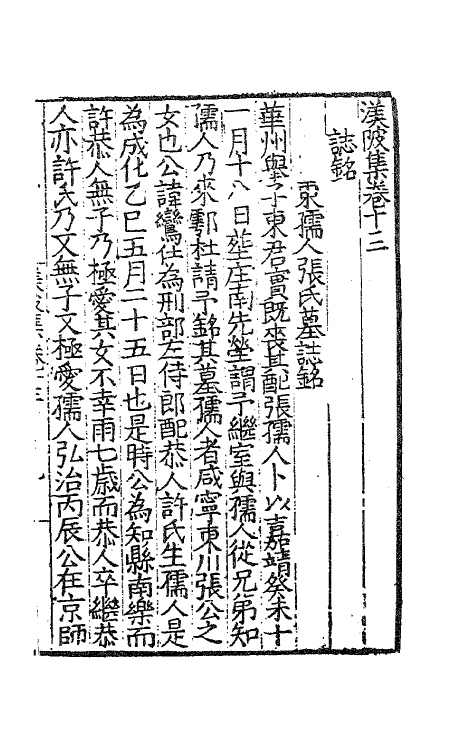 渼陂集卷十三
誌銘
東孺人張氏墓誌銘
華州舉子東君實既喪其配張孺人卜以嘉靖癸未十
一月十八日塟庄南先塋謂予繼室與孺人從兄弟知
孺人乃來鄠杜請予銘其墓孺人者咸寧東川張公之
女也公諱鸞仕為刑部左侍郎配恭人許氏生孺人是
為成化乙巳五月二十五日也是時公為知縣南樂而
許恭人無子乃極愛其女不幸甫七歲而恭人卒繼恭
人亦許氏乃又無子又極愛孺人弘治丙辰公在京師